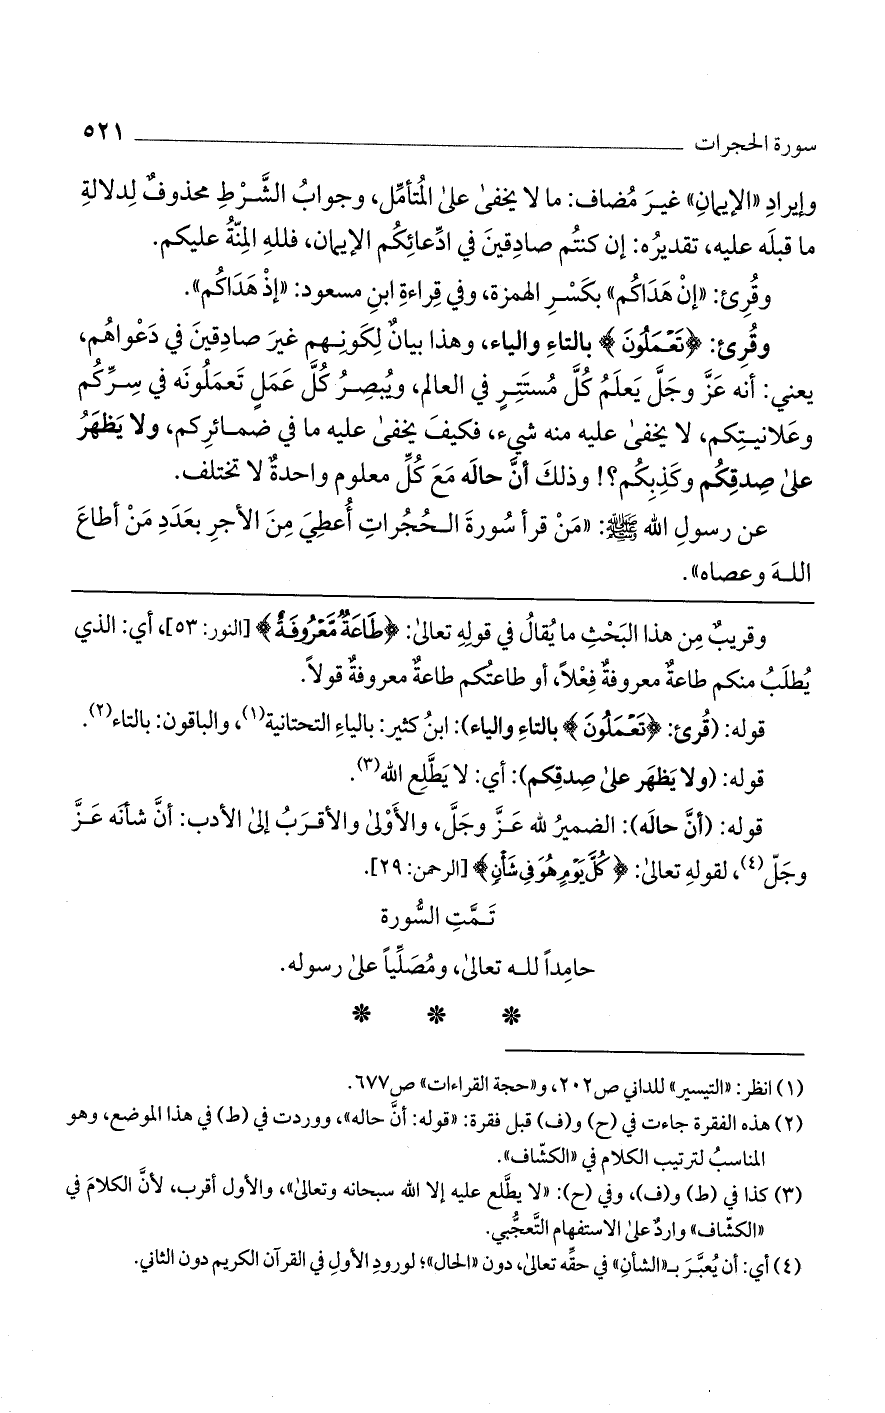 سورة الحجرات ٥٢١
وإيرادِ «الإيمانِ» غيرَ مُضاف: ما لا يخفىٰ علىٰ المُتأمِّل، وجوابُ الشَّرْطِ محذوفٌ لِدلالةِ
ما قبلَه عليه، تقديرُه: إن كنتُم صادِقينَ في ادِّعائِكُم الإيمان، فللهِ المِنّةُ عليكم.
وقُرِئ: «إنْ هَدَاكُم» بكَسْرِ الهمزة، وفي قِراءةِ ابنِ مسعود: «إذْ هَدَاكُم».
وقُرِئ: ﴿تَعْمَلُونَ﴾ بالتاءِ والياء، وهذا بيانٌ لِكونِهم غيرَ صادِقينَ في دَعْواهُم،
يعني: أنه عَزَّ وجَلَّ يَعلَمُ كُلَّ مُستَتِرٍ في العالم، ويُبصِرُ كُلَّ عَمَلٍ تَعمَلُونَه في سِرِّكُم
وعَلانيتِكم، لا يخفىٰ عليه منه شيء، فكيفَ يخفىٰ عليه ما في ضمائرِكم، ولا يَظهَرُ
علىٰ صِدقِكُم وكَذِبِكُم؟! وذلكَ أنَّ حالَه مَعَ كُلِّ معلوم واحدةٌ لا تختلف.
عن رسولِ الله ﷺ: «مَنْ قرأ سُورةَ الحُجُراتِ أُعطِيَ مِنَ الأجرِ بعَدَدِ مَنْ أطاعَ
اللهَ وعصاه».
وقريبٌ مِن هذا البَحْثِ ما يُقالُ في قولِهِ تعالىٰ: ﴿طَاعَةٌ مَّعْرُوفَةٌ﴾ [النور: ٥٣]، أي: الذي
يُطلَبُ منكم طاعةٌ معروفةٌ فِعْلاً، أو طاعتُكم طاعةٌ معروفةٌ قولاً.
قوله: (قُرِئ: ﴿تَعْمَلُونَ﴾ بالتاءِ والياء): ابنُ كثير: بالياءِ التحتانية(١)، والباقون: بالتاء(٢).
قوله: (ولا يَظهَر علىٰ صِدقِكم): أي: لا يَطَّلِع الله(٣).
قوله: (أنَّ حالَه): الضميرُ لله عَزَّ وجَلَّ، والأَوْلىٰ والأقرَبُ إلىٰ الأدب: أنَّ شأنَه عَزَّ
وجَلّ(٤)، لقولهِ تعالىٰ: ﴿كُلَّ يَوْمٍ هُوَ فِي شَأْنٍ﴾ [الرحمن: ٢٩].
تَمَّتِ السُّورة
حامِداً لله تعالىٰ، ومُصَلِّياً علىٰ رسوله.
* * *
(١) انظر: «التيسير» للداني ص٢٠٢، و«حجة القراءات» ص٦٧٧.
(٢) هذه الفقرة جاءت في (ح) و(ف) قبل فقرة: «قوله: أنَّ حاله»، ووردت في (ط) في هذا الموضع، وهو
المناسبُ لترتيب الكلام في «الكشّاف».
(٣) كذا في (ط) و(ف)، وفي (ح): «لا يطَّلع عليه إلا الله سبحانه وتعالىٰ»، والأول أقرب، لأنَّ الكلامَ في
«الكشّاف» واردٌ علىٰ الاستفهام التَّعجُّبي.
(٤) أي: أن يُعبَّرَ بـ«الشأنِ» في حقِّه تعالىٰ، دون «الحال»؛ لورودِ الأولِ في القرآن الكريم دون الثاني.